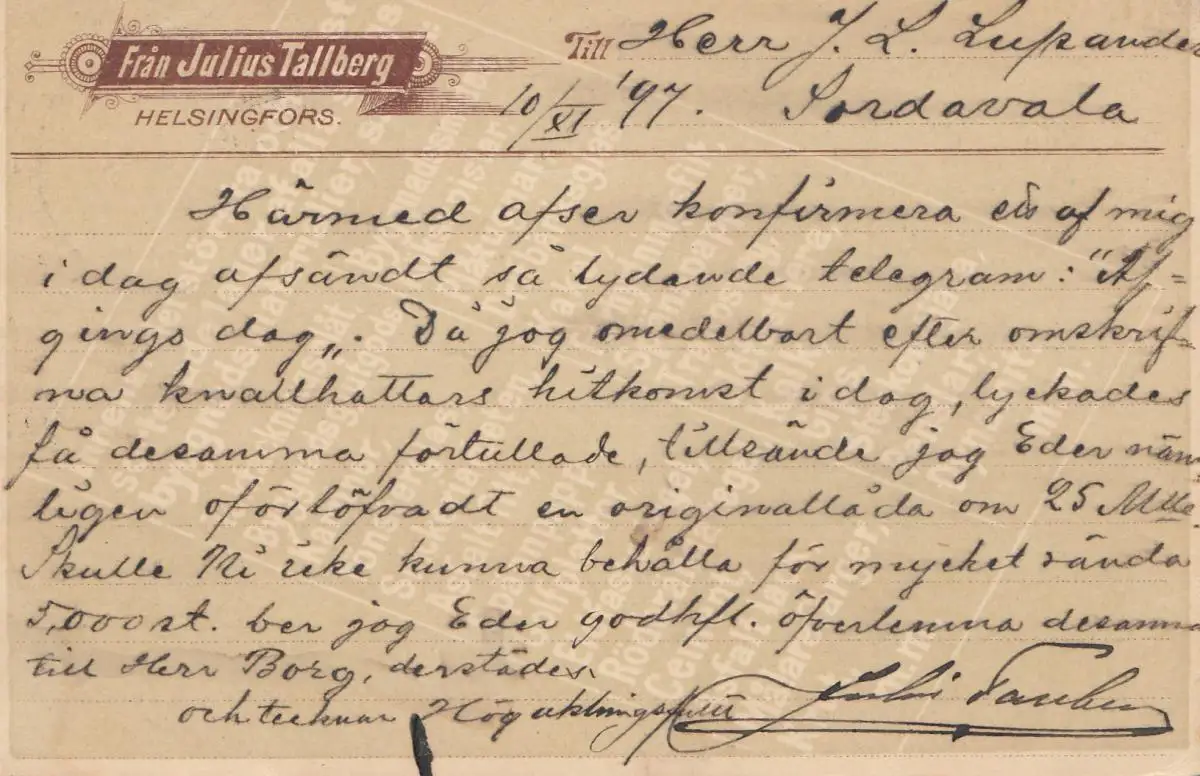 Från Julius Tallberg
HELSINGFORS.
Till Herr J. L. Lupander
10/XI '97. Sordavala
Härmed afser konfirmera ett af mig
i dag afsändt så lydande telegram: "Af=
gings dag„. Då jag omedelbart efter omskrif=
na knallhattars hitkomst i dag, lyckades
få desamma förtullade, tillsände jag Eder näm
ligen oförtöfvadt en originallåda om 25 Mlle
Skulle Ni icke kunna behålla för mycket sända
5,000 st. ber jag Eder godhfl. öfverlemna desamma
till Herr Borg, derstädes.
och tecknar Högaktningsfullt